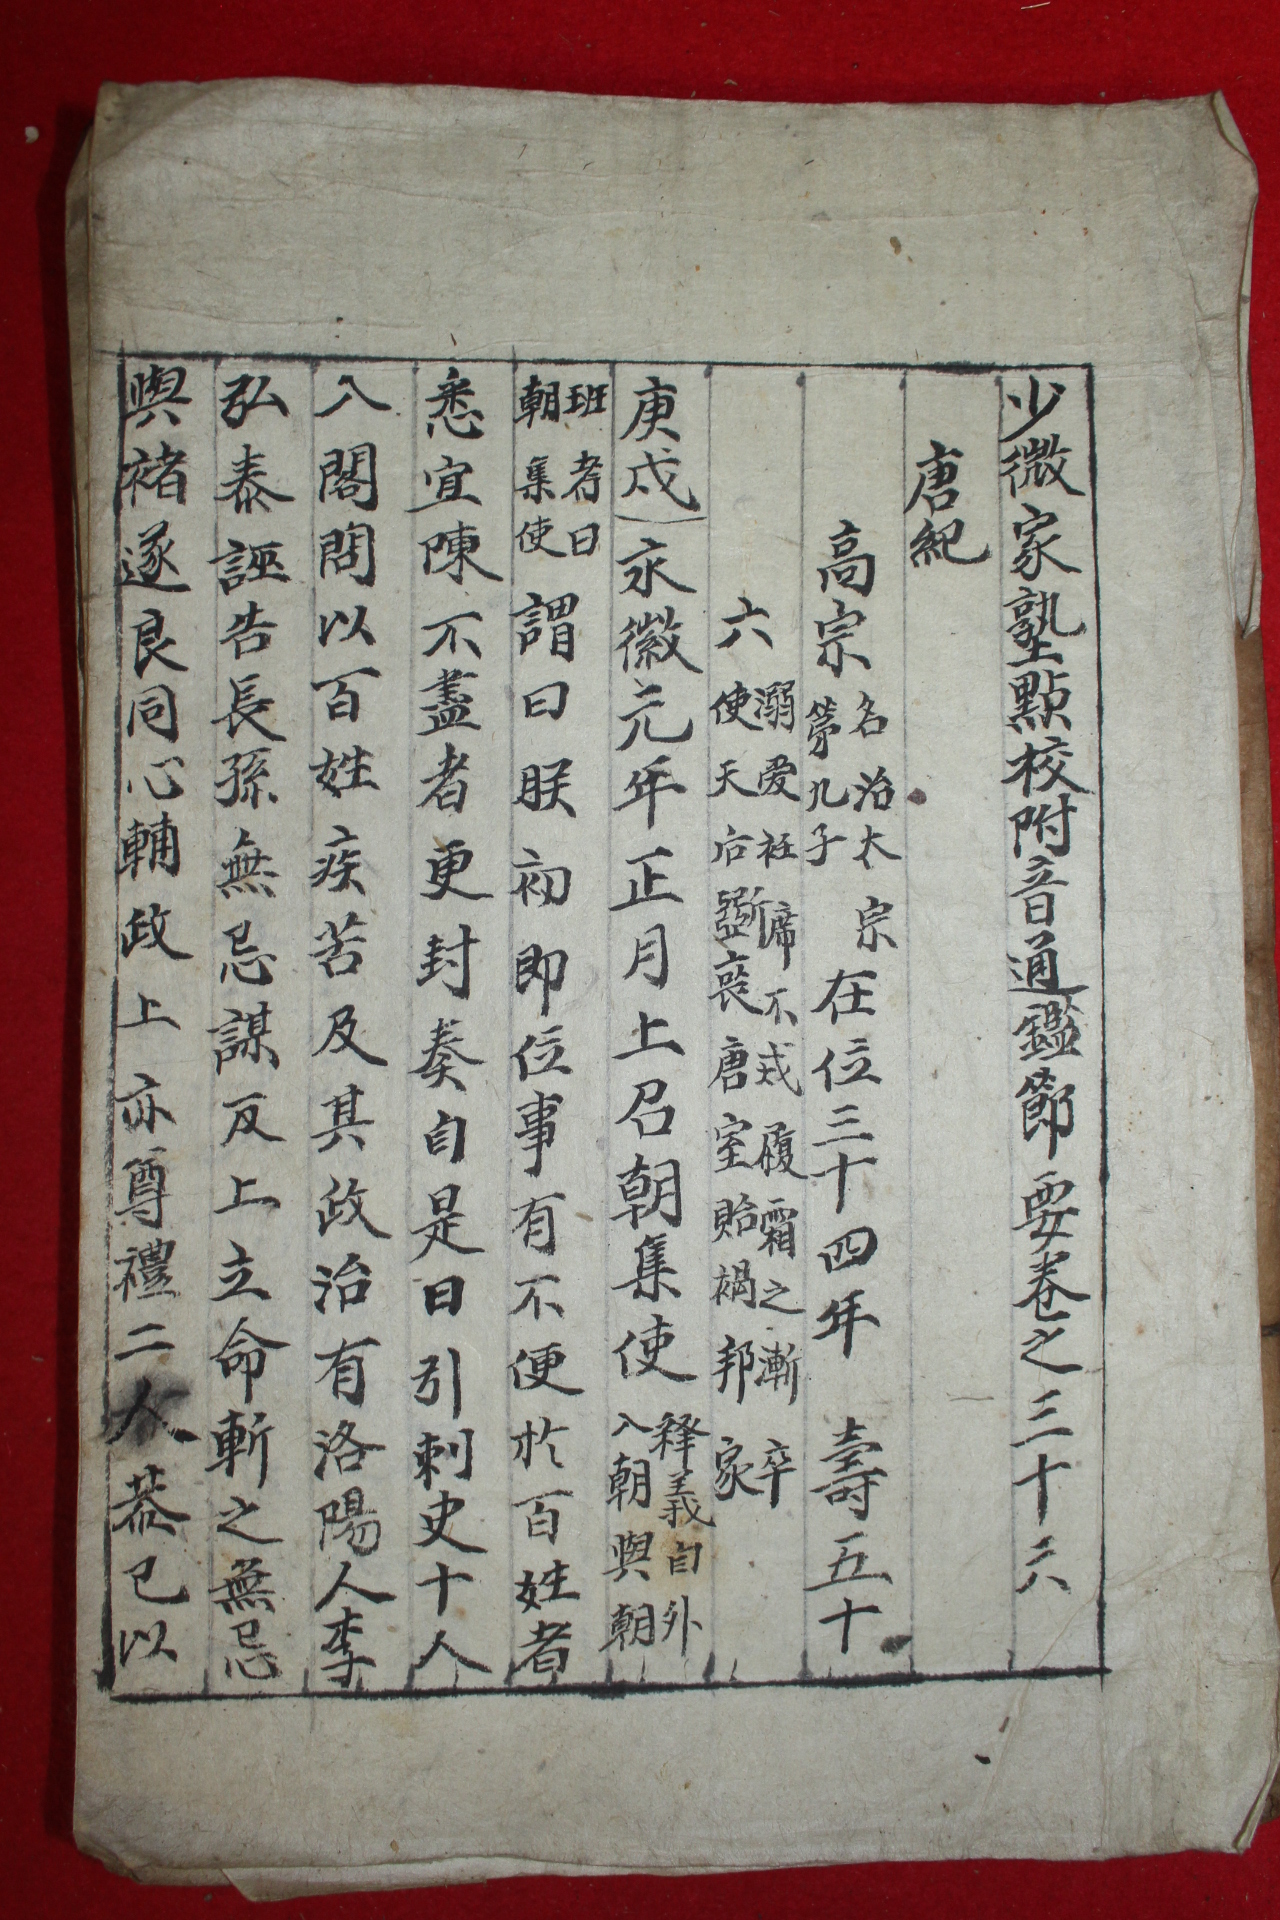 少微家塾點校附音通鑑節要卷之三十六
唐紀
高宗 名治太宗第九子 在位三十四年 壽五十
六 溺爱衽席不戒履霜之漸卒使天后斲喪唐室貽禍邦家
庚戌 永徽元年正月上召朝集使 释義自外入朝與朝
班者曰朝集使 謂曰朕初即位事有不便於百姓者
悉宜陳不盡者更封奏自是日引刺史十人
入閤問以百姓疾苦及其政治有洛陽人李
弘泰誣告長孫無忌謀反上立命斬之無忌
與褚遂良同心輔政上亦尊禮二人恭己以